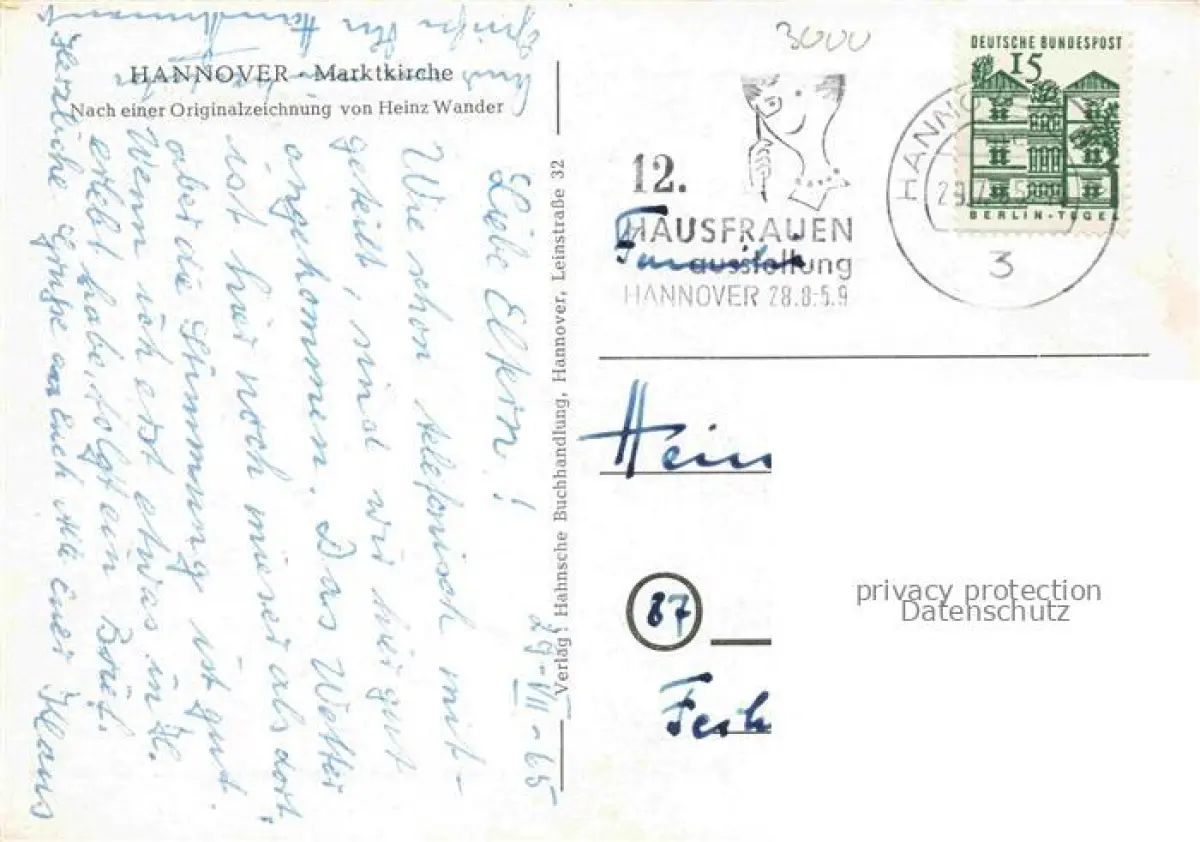 HANNOVER - Marktkirche
Nach einer Originalzeichnung von Heinz Wander
29-VII-65
Liebe Eltern!
Wie schon telefonisch mit-
geteilt, sind wir hier gut
angekommen. Das Wetter
ist hier noch mieser als dort,
aber die Stimmung ist gut.
Wenn ich erst etwas in H.
erlebt habe, folgt ein Brief.
Herzliche Grüße an Euch alle Euer Klaus
Verlag: Hahnsche Buchhandlung, Hannover, Leinstraße 32
3000
12.
HAUSFRAUEN
ausstellung
HANNOVER 28.8.-5.9
DEUTSCHE BUNDESPOST
15
BERLIN-TEGEL
3
Familie
Hein
87
privacy protection
Datenschutz